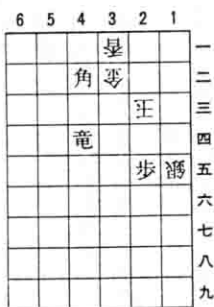 6 5 4 3 2 1
香 一
角 金 二
王 三
竜 四
歩 銀 五
六
七
八
九